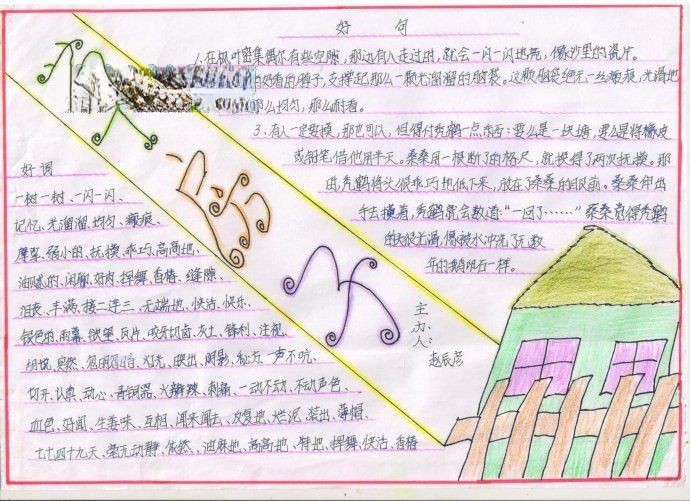 好 句
1、在枫叶密集偶尔有些空隙，那边有人走过时，就会一闪一闪地亮，像沙里的瓷片。
支撑起那么一颗光溜溜的脑袋。这颗脑袋绝无一丝瘢痕，光滑地
那么均匀，那么耐看。
3、有人一定要摸，那也可以，但得付秃鹤一点东西：要么是一块糖，要么是将橡皮
或铅笔借他用半天。桑桑用一根断了的格尺，就换得了两次抚摸。那
时，秃鹤将头很乖巧地低下来，放在了桑桑的眼前。桑桑伸出
手去摸着，秃鹤就会数道：“一回了……”桑桑觉得秃鹤
的头很光滑，像被水冲洗了无数
年的鹅卵石一样。
好 词
一树一树、一闪一闪、
记忆、光溜溜、均匀、瘢痕、
弱小的、抚摸、乖巧、高高地、
油腻的、闲聊、好肉、挥舞、香椿、缝隙、
泪丧、丰满、接二连三、无端地、快活、快乐、
银色的、雨幕、欲望、瓦片、咬牙切齿、灰土、锋利、注视、
灯光、映出、阴影、一声不吭、
切开、认真、动心、青铜器、火辣辣、刺痛、一动不动、不动声色、
血色、好闻、生姜味、互相、闻来闻去、反复地、烂泥、装出、薄帽、
七七四十九天、毫无动静、依然、油麻地、高高地、特地、挥舞、快活、香椿
主
办
人：
赵辰彦